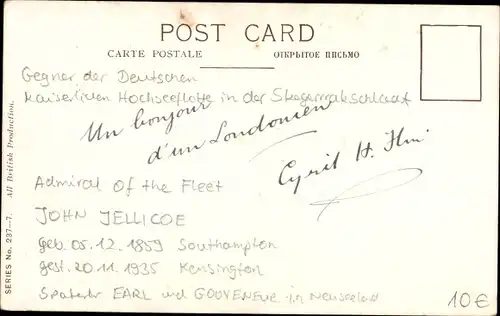 POST CARD
CARTE POSTALE ОТКРЫТОЕ ПИСЬМО
Gegner der Deutschen
Kaiserlichen Hochseeflotte in der Skagerrakschlacht
Un bonjour
d'un Londonien
Cyril H.
Admiral Of the Fleet
JOHN JELLICOE
geb. 05.12.1859 Southampton
gest. 20.11.1935 Kensington
Später EARL und GOUVENEUR in Neuseeland
10€
SERIES No. 237—7. All British Production.